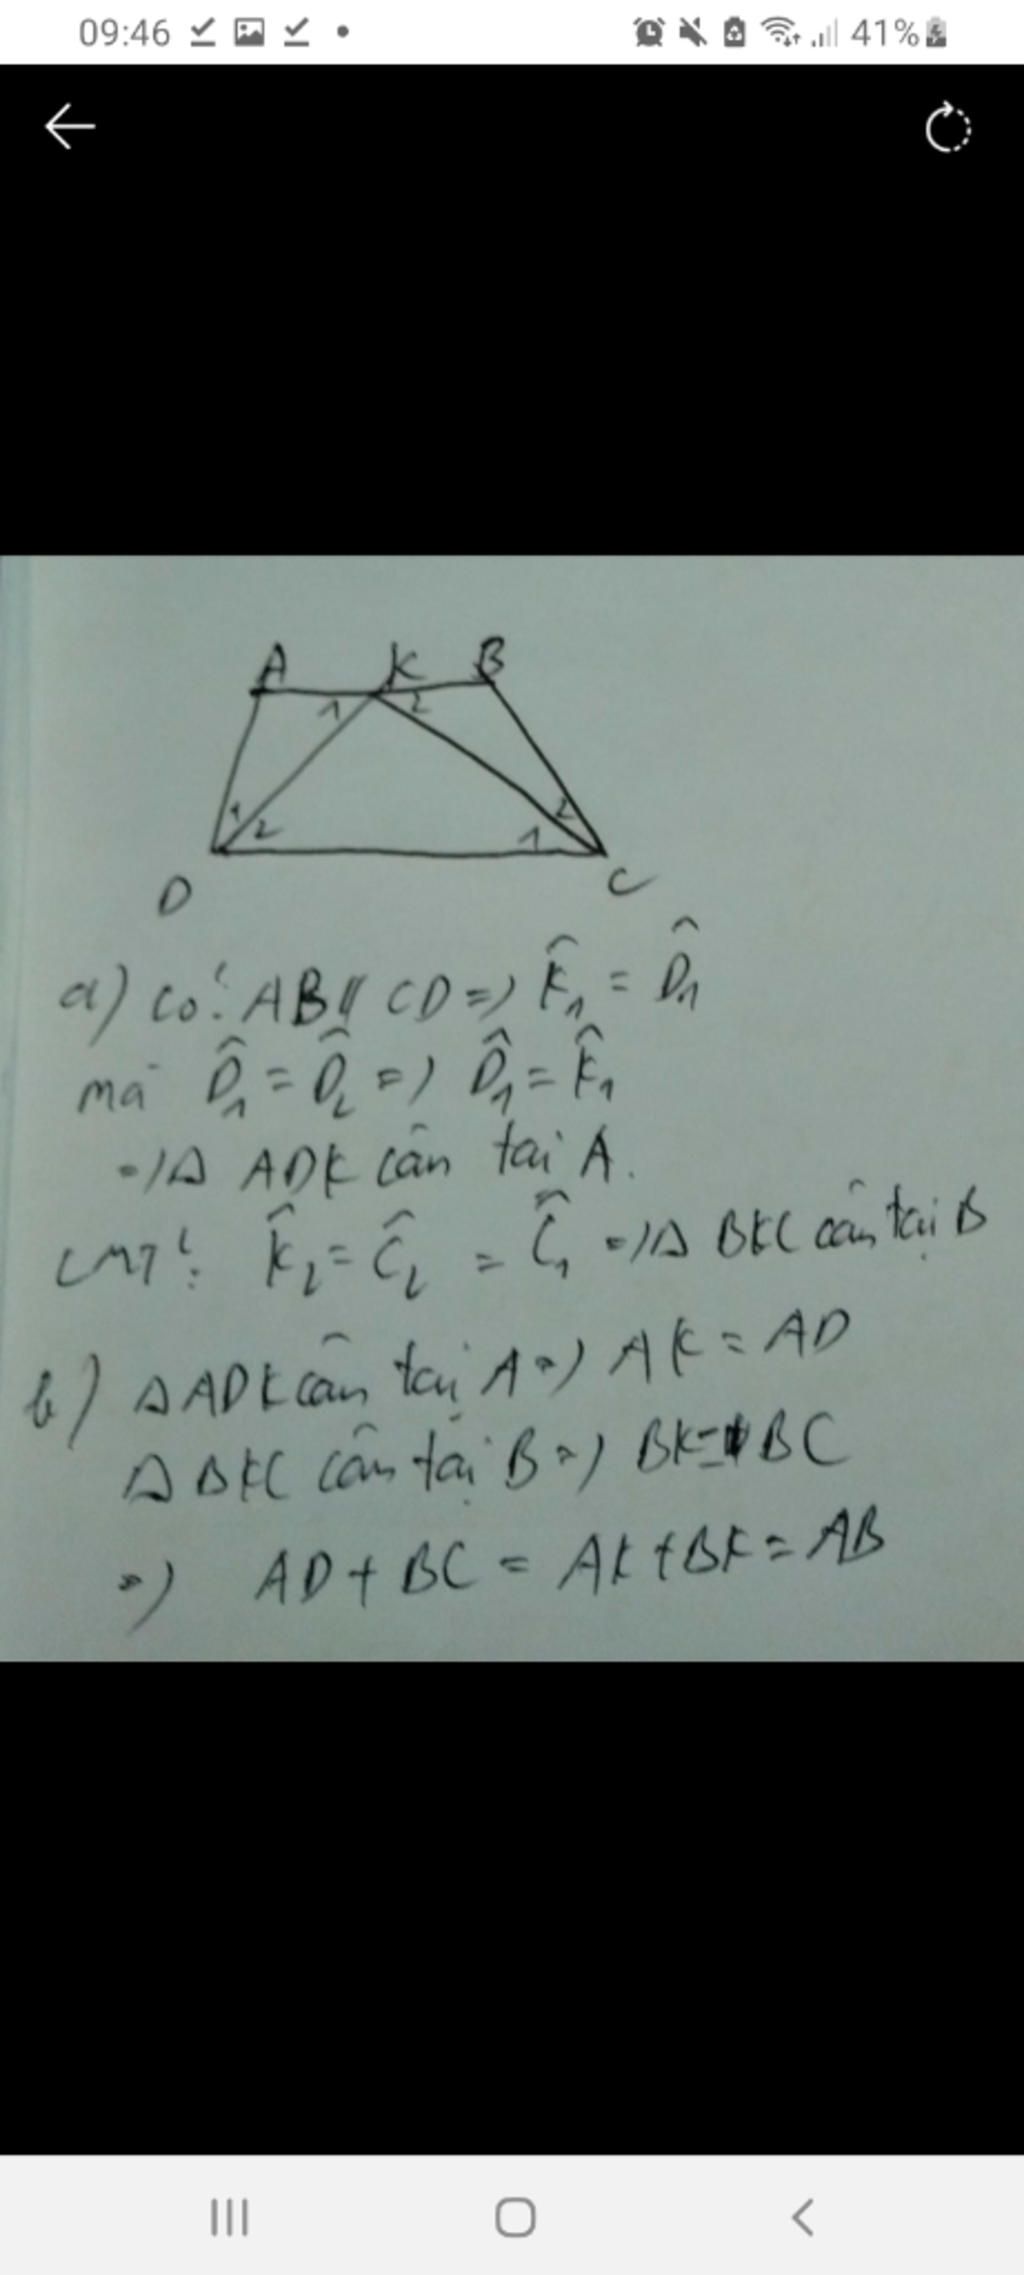 09:46 41%
A K B
1 2
1 2 1 2
D C
a) Có: AB // CD => K̂₁ = D̂₁
mà D̂₁ = D̂₂ => D̂₁ = K̂₁
=> Δ ADK cân tai A.
CMT²: K̂₂ = Ĉ₂ = Ĉ₁ => Δ BKC cân tại B
b) Δ ADK cân tại A => AK = AD
Δ BKC cân tại B => BK = BC
=> AD + BC = AK + BK = AB